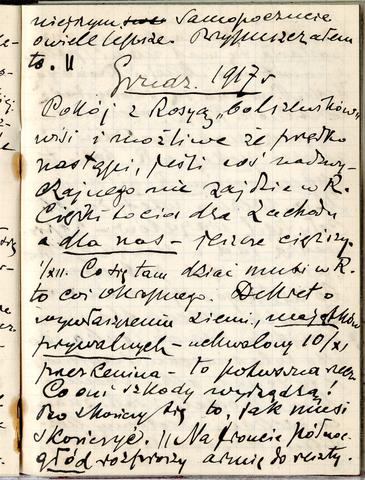 niejszym Samopoczucie
o wiele lepsze. Przypuszczałem
to. ||
Grudz. 1917 r
Pokój z Rosyą „bolszewików"
wisi i możliwe że prędko
nastąpi, jeśli coś nadzwy-
czajnego nie zajdzie w R.
Ciężki to cios dla Zachodu
a dla nas – jeszcze cięższy.
1/XII. Co się tam dziać musi w R.
to coś okropnego. Dekret o
wywłaszczeniu ziemi, majątków
prywatnych – uchwalony 10/XI
przez Lenina – to potworna rzecz
Co oni szkody wyrządzą!
No skończy się to, jak musi
skończyć. || Na froncie północ
głód rozproszy armię do reszty.